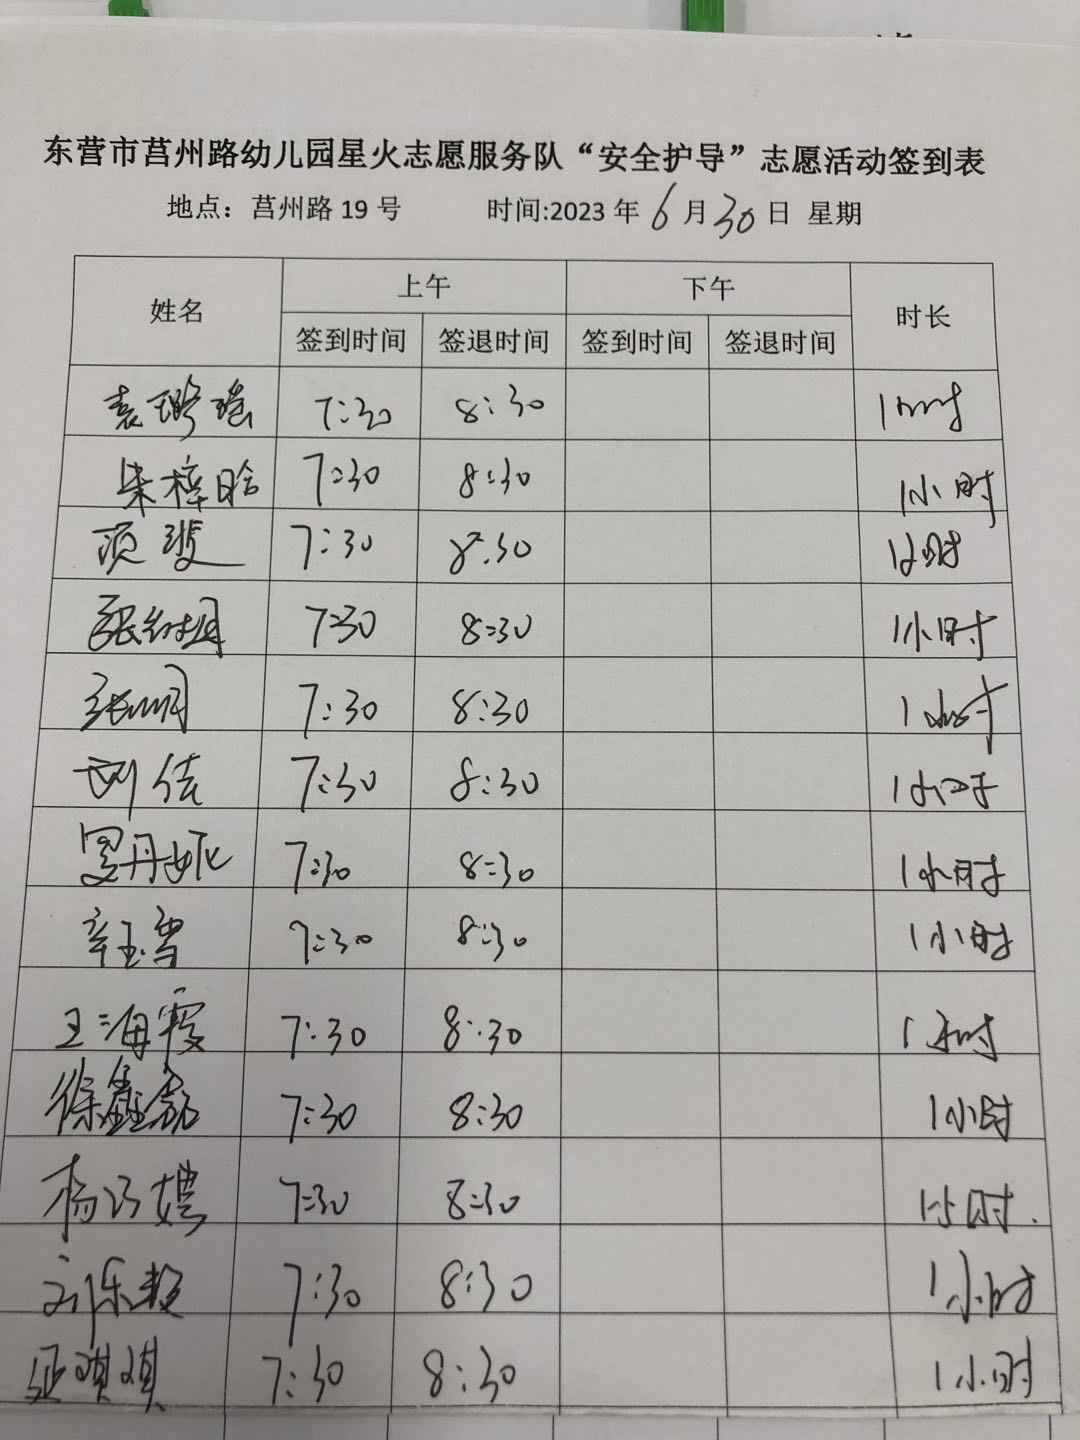 东营市莒州路幼儿园星火志愿服务队“安全护导”志愿活动签到表
地点：莒州路 19 号 时间:2023 年 6 月 30 日 星期
姓名 上午 下午 时长
签到时间 签退时间 签到时间 签退时间
袁璐瑶 7:30 8:30 1小时
朱梓晗 7:30 8:30 1小时
项斐 7:30 8:30 1小时
张 7:30 8:30 1小时
张明 7:30 8:30 1小时
刘佳 7:30 8:30 1小时
罗丹妮 7:30 8:30 1小时
辛玉雪 7:30 8:30 1小时
王海霞 7:30 8:30 1小时
徐鑫磊 7:30 8:30 1小时
杨巧娉 7:30 8:30 1小时.
刘乐毅 7:30 8:30 1小时
琪琪 7:30 8:30 1小时